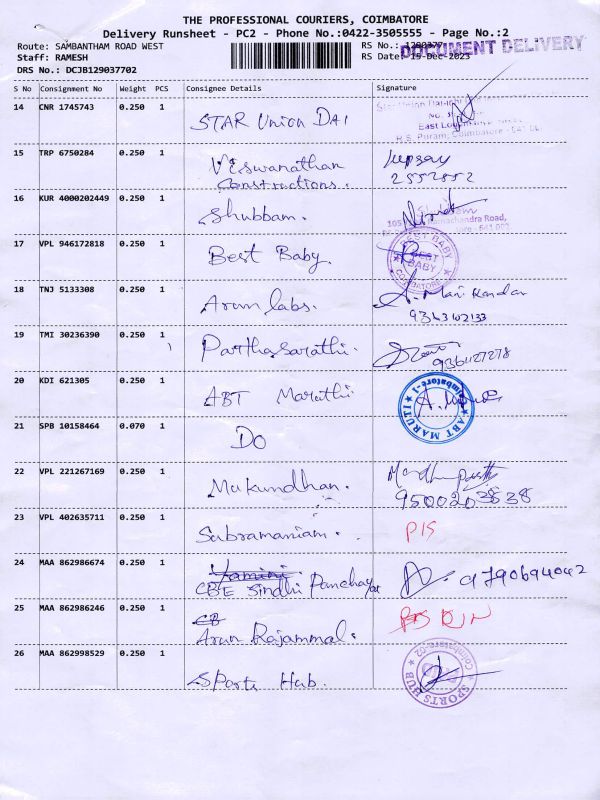 THE PROFESSIONAL COURIERS, COIMBATORE
Delivery Runsheet - PC2 - Phone No.:0422-3505555 - Page No.:2
Route: SAMBANTHAM ROAD WEST
RS No.: DOCUMENT DELIVERY
Staff: RAMESH
RS Date: 15-Dec-2023
DRS No.: DCJB129037702
S No Consignment No Weight PCS Consignee Details Signature
14 CNR 1745743 0.250 1 STAR Union DAI
R.S. Puram, Coimbatore
15 TRP 6750284 0.250 1 Viswanathan
Constructions. 2552552
16 KUR 4000202449 0.250 1 Shubbam.
17 VPL 946172818 0.250 1 Best Baby.
BEST BABY
BEST BABY
COIMBATORE
18 TNJ 5133308 0.250 1 Arun labs. A. Mani Kandan
9363102133
19 TMI 30236390 0.250 1 Parthasarathi.
20 KDI 621305 0.250 1 ABT Maruthi
ABT MARUTI Coimbatore-1
21 SPB 10158464 0.070 1 DO
22 VPL 221267169 0.250 1 Mukundhan.
9500203838
23 VPL 402635711 0.250 1 Subramaniam. P/S
24 MAA 862986674 0.250 1 Yamini
CBE Sindhi Panchayat 9790694042
25 MAA 862986246 0.250 1 CB
Arun Rajammal.
26 MAA 862998529 0.250 1
Sports Hub.
SPORTS HUB Coimbatore-02